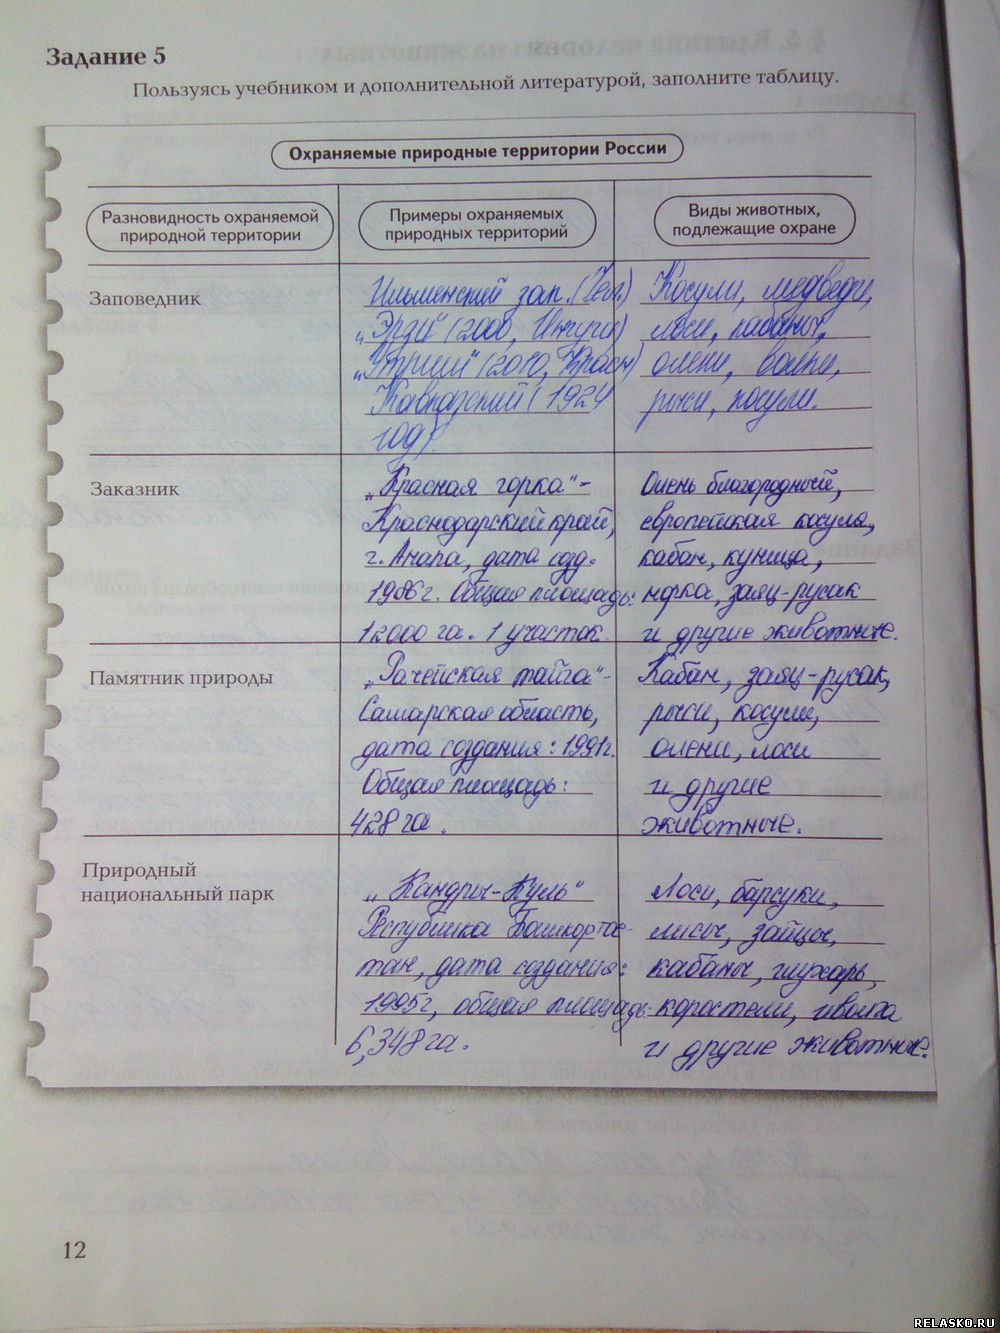 Задание 5
Пользуясь учебником и дополнительной литературой, заполните таблицу.
Охраняемые природные территории России
Разновидность охраняемой
природной территории
Примеры охраняемых
природных территорий
Виды животных,
подлежащие охране
Заповедник
Ильменский зап.
„Эрзи“ (2000, Ингуш)
„Утриш“ (2010,
Кавказский (1924
год).
Косули, медведи,
лоси, кабаны,
олени, волки,
рыси, косули.
Заказник
„Красная горка“-
Краснодарский край,
г. Анапа, дата созд.
г. Общая площадь:
12000 га. 1 участок.
Олень благородный,
европейская косуля,
кабан, куница,
норка, заяц-русак
и другие животные.
Памятник природы
„Рачейская тайга“-
Самарская область,
дата создания: 1991г.
Общая площадь:
428 га.
Кабан, заяц-русак,
рыси, косули,
олени, лоси
и другие
животные.
Природный
национальный парк
„Кандры-Куль“
Республика Башкортос-
тан, дата создания:
1995г, общая площадь-
6,348 га.
Лоси, барсуки,
лисы, зайцы,
кабаны, глухарь,
коростели, иволга
и другие животные.
12
RELASKO.RU